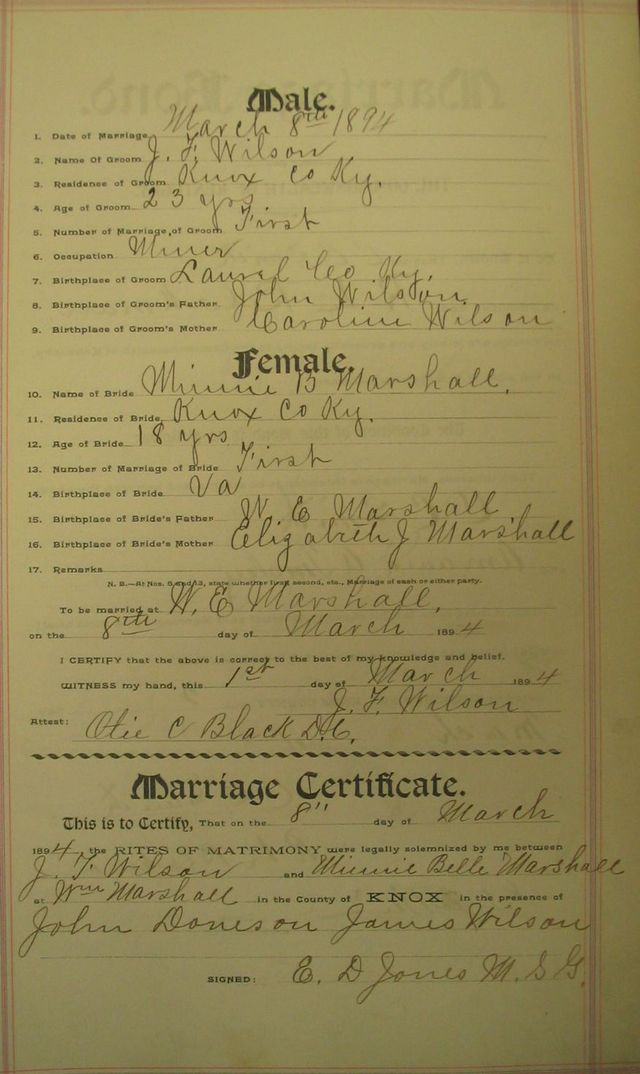 Male.
1. Date of Marriage March 8th 1894
2. Name Of Groom J. F. Wilson
3. Residence of Groom Knox Co Ky.
4. Age of Groom 23 yrs
5. Number of Marriage of Groom First
6. Occupation Miner
7. Birthplace of Groom Laurel Co Ky.
8. Birthplace of Groom's Father John Wilson
9. Birthplace of Groom's Mother Caroline Wilson
Female.
10. Name of Bride Minnie B Marshall,
11. Residence of Bride Knox Co Ky.
12. Age of Bride 18 yrs
13. Number of Marriage of Bride First
14. Birthplace of Bride Va
15. Birthplace of Bride's Father W E Marshall
16. Birthplace of Bride's Mother Elizabeth J Marshall
17. Remarks
N. B.—At Nos. 5 and 13, state whether first, second, etc., Marriage of each or either party.
To be married at W. E Marshall,
on the 8th day of March 1894
I CERTIFY that the above is correct to the best of my knowledge and belief.
WITNESS my hand, this 1st day of March 1894
J. F. Wilson
Attest: Otie C Black D.C.
Marriage Certificate.
This is to Certify, That on the 8" day of March
1894, the RITES OF MATRIMONY were legally solemnized by me between
J. F. Wilson and Minnie Belle Marshall
at Wm Marshall in the County of KNOX in the presence of
John Doneson James Wilson
SIGNED: E. D Jones M. G.